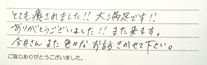 とても癒されました!!大満足です!!
ありがとうございました!!また来ます。
今日さん また色々な お話きかせて下さい。
ご協力ありがとうございました。